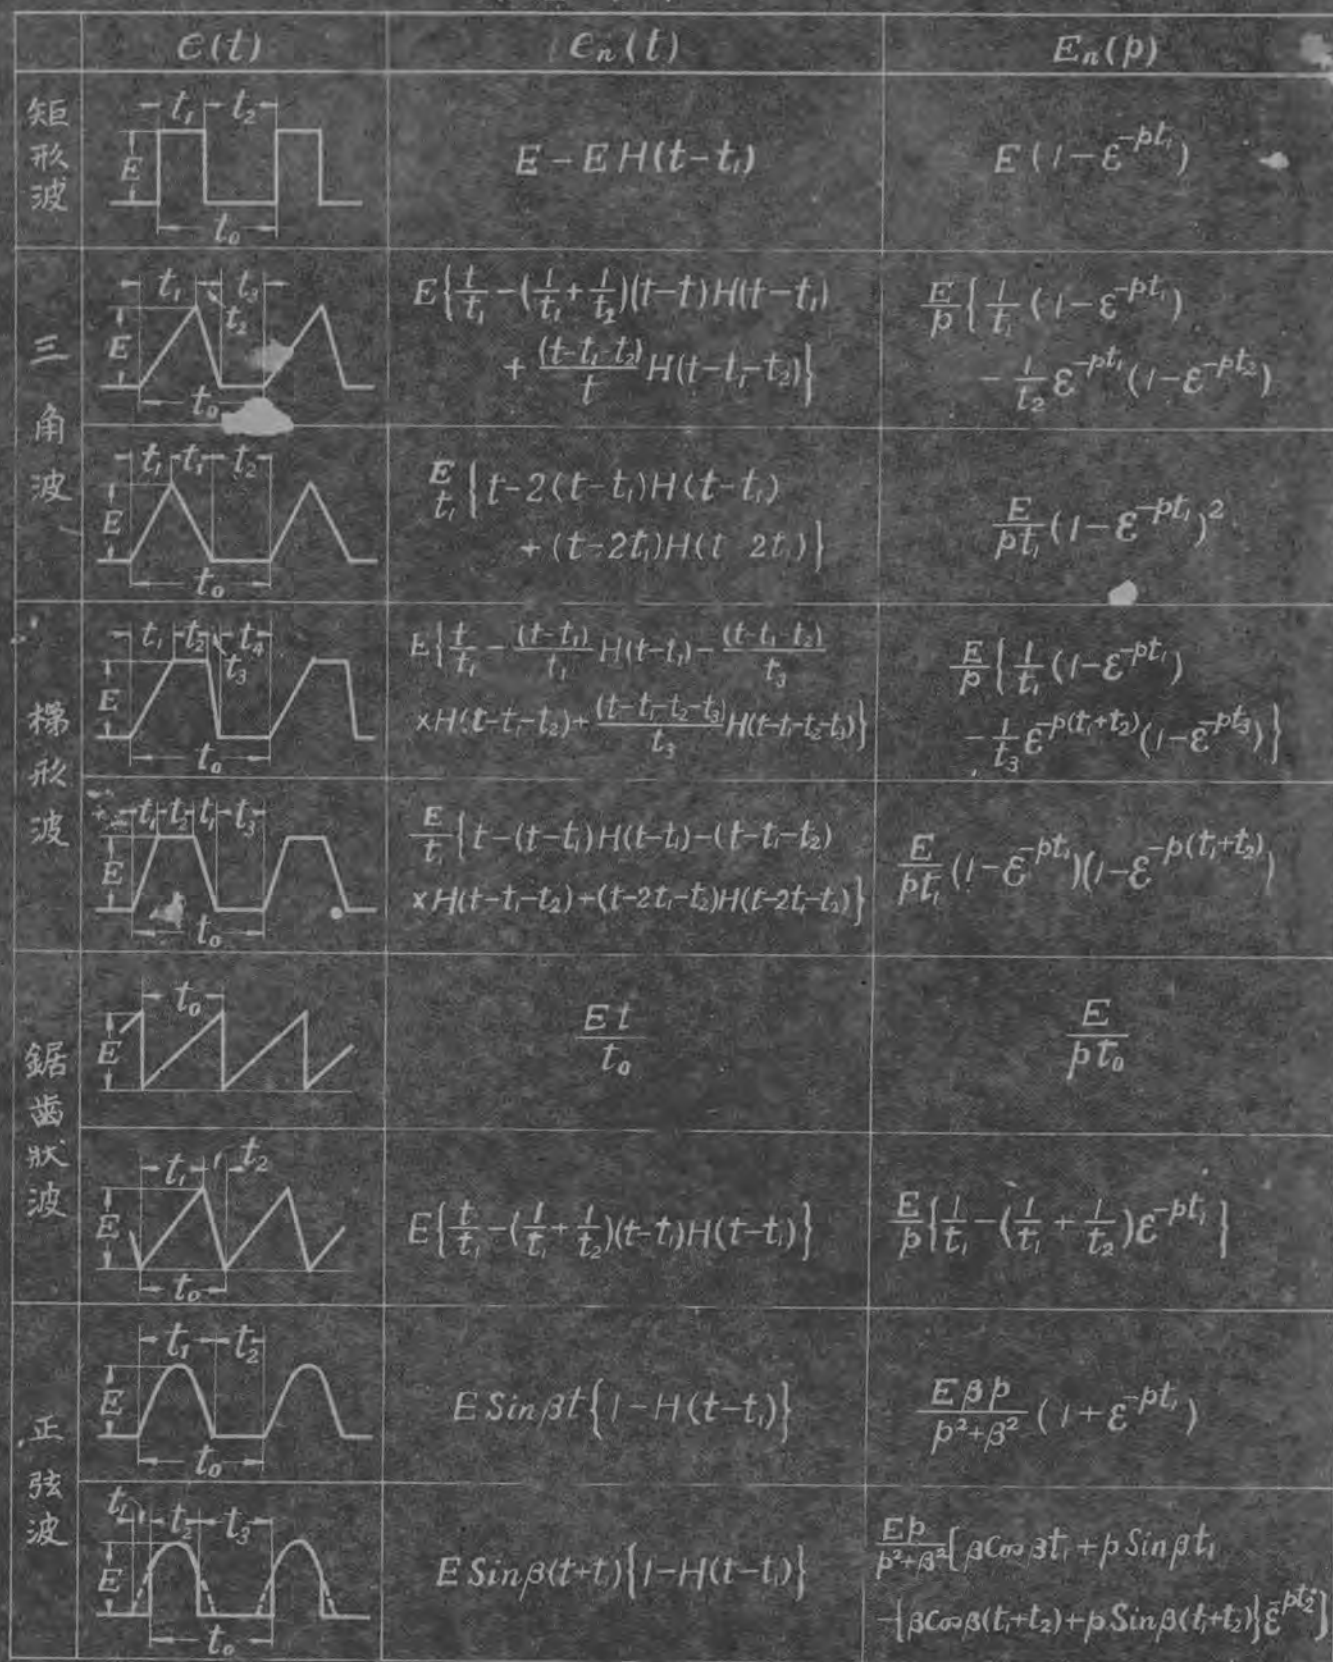 e(t) e_n(t) E_n(p)
矩形波
t₁ t₂
E
t₀
E − E H(t−t₁)
E(1−ε^{−pt₁})
三角波
t₁ t₃
t₂
E
t₀
E{t/t₁ − (1/t₁ + 1/t₂)(t−t)H(t−t₁)
+ (t−t₁−t₂)/t H(t−t₁−t₂)}
E/p{1/t₁ (1−ε^{−pt₁})
− 1/t₂ ε^{−pt₁}(1−ε^{−pt₂})
t₁ t₁ t₂
E
t₀
E/t₁ {t−2(t−t₁)H(t−t₁)
+ (t−2t₁)H(t 2t₁)}
E/pt₁ (1−ε^{−pt₁})²
梯形波
t₁ t₂ t₄
t₃
E
t₀
E{t/t₁ − (t−t₁)/t₁ H(t−t₁) − (t−t₁−t₂)/t₃
×H(t−t₁−t₂) + (t−t₁−t₂−t₃)/t₃ H(t−t₁−t₂−t₃)}
E/p{1/t₁ (1−ε^{−pt₁})
− 1/t₃ ε^{−p(t₁+t₂)}(1−ε^{−pt₃})}
t₁ t₂ t₁ t₃
E
t₀
E/t₁ {t−(t−t₁)H(t−t₁)−(t−t₁−t₂)
×H(t−t₁−t₂)+(t−2t₁−t₂)H(t−2t₁−t₂)}
E/pt₁ (1−ε^{−pt₁})(1−ε^{−p(t₁+t₂)})
鋸歯狀波
t₀
E
Et/t₀
E/pt₀
t₁ t₂
E
t₀
E{t/t₁ − (1/t₁ + 1/t₂)(t−t₁)H(t−t₁)}
E/p{1/t₁ − (1/t₁ + 1/t₂)ε^{−pt₁}}
正弦波
t₁ t₂
E
t₀
E Sin βt{1−H(t−t₁)}
Eβp/p²+β² (1+ε^{−pt₁})
t₁ t₂ t₃
E
t₀
E Sin β(t+t₁){1−H(t−t₁)}
Ep/p²+β² [βCos βt₁ + p Sin βt₁
−{βCos β(t₁+t₂)+p Sin β(t₁+t₂)}ε^{−pt₂}]